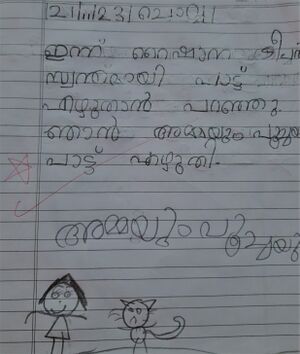 21/11/23/ചൊവ്വ/
ഇന്ന് റൈഹാന ടീച്ചർ
സ്വന്തമായി പാട്ട്
എഴുതാൻ പറഞ്ഞു.
ഞാൻ അമ്മയും പൂച്ചയു
പാട്ട് എഴുതി.
അമ്മയും പൂച്ചയും